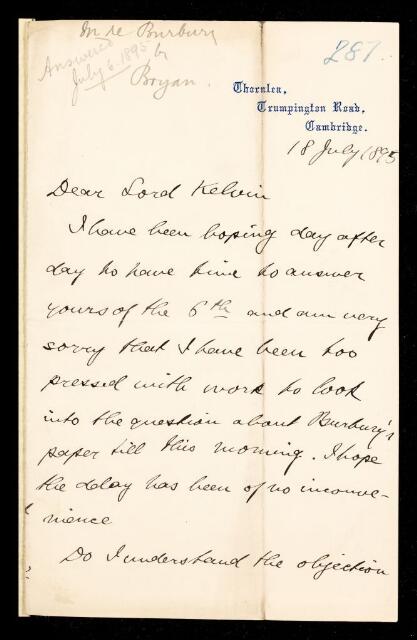 In re Burbury
by
Bryan.
Answered
July 6. 1895
287
Thornlea,
Trumpington Road,
Cambridge.
18 July 1895
Dear Lord Kelvin
I have been hoping day after
day to have time to answer
yours of the 6th and am very
sorry that I have been too
pressed with work to look
into the question about Burbury's
paper till this morning. I hope
the delay has been of no inconve-
nience
Do I understand the objection